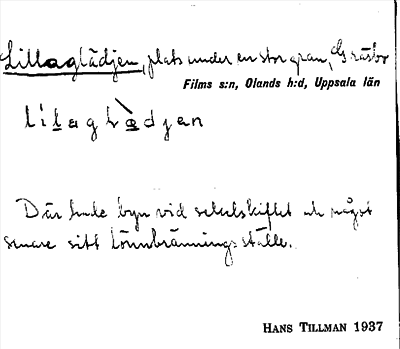 Lillaglädjen, plats under en stor gran, Gräsbo
Films s:n, Olands h:d, Uppsala län
Där hade byn vid sekelskiftet och något
senare sitt tönnbrännings ställe.
HANS TILLMAN 1937